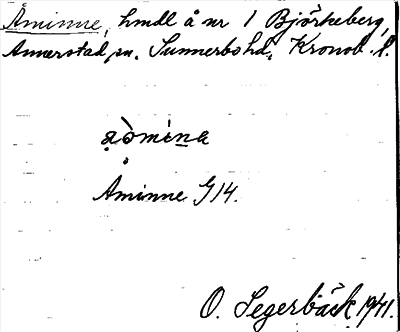 Åminne, hmdl å nr 1 Björkeberg,
Annerstad sn. Sunnerbo hd, Kronob. l.
Åminne G14.
O. Segerbäck 1941.